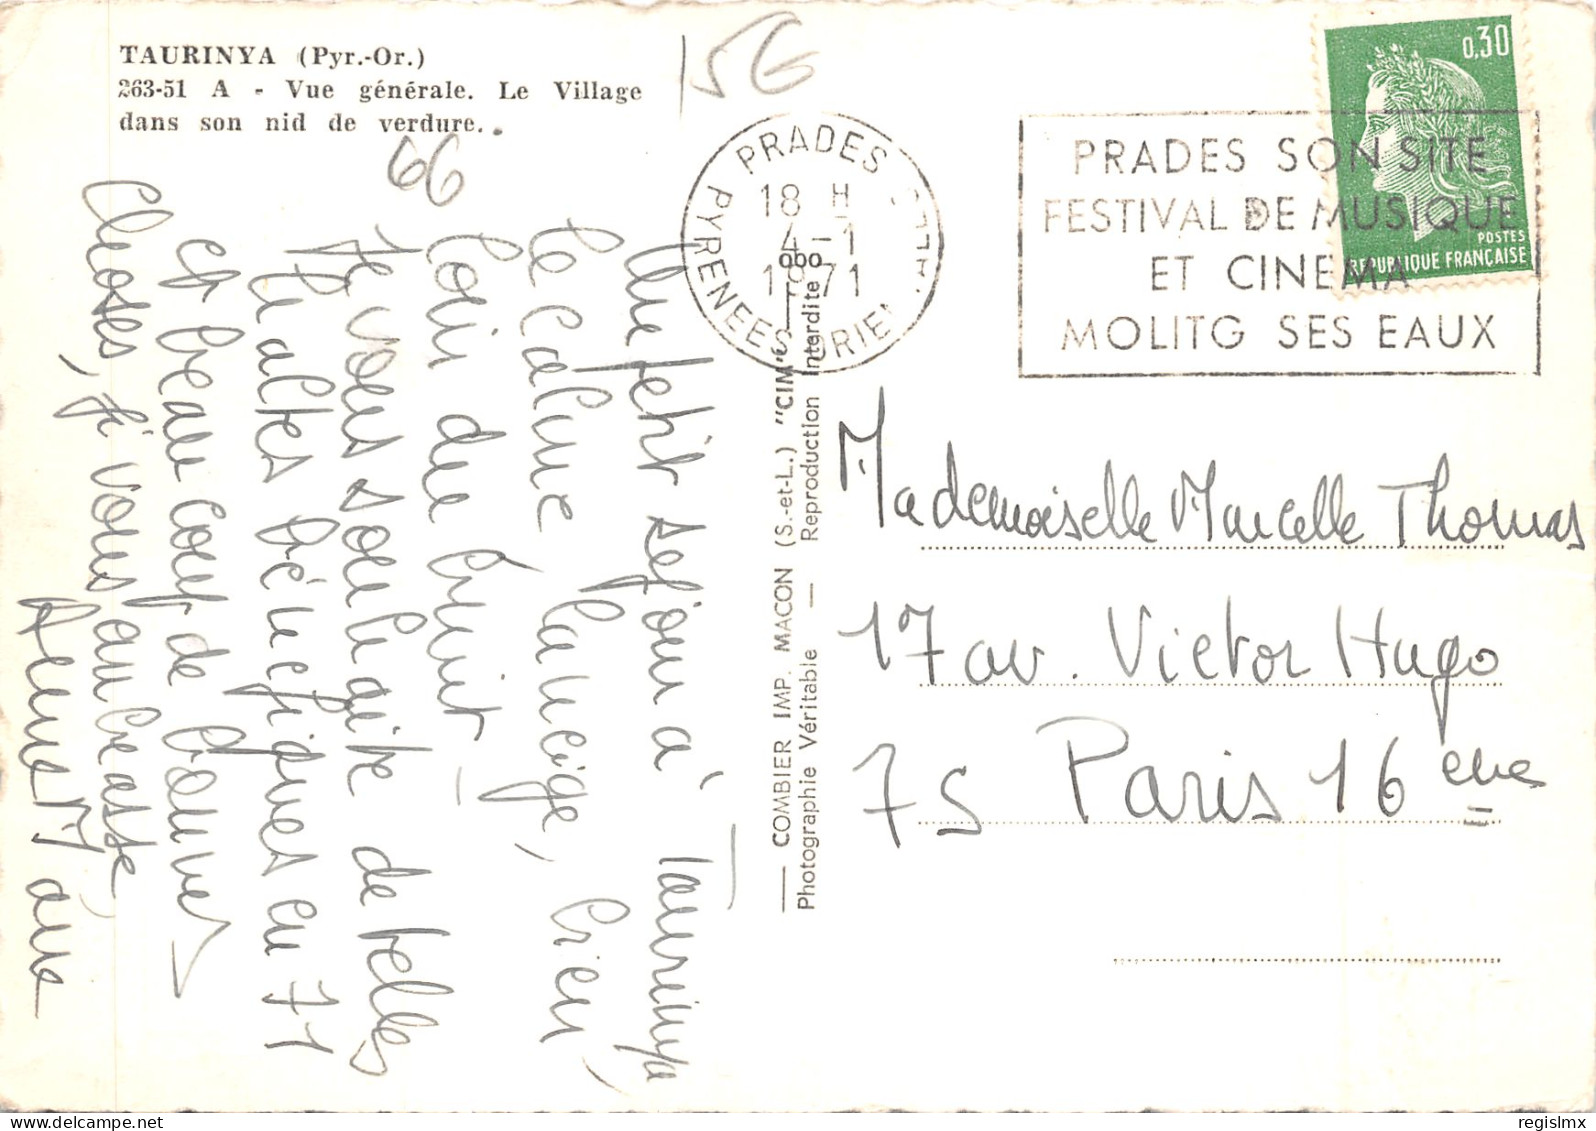 TAURINYA (Pyr.-Or.)
263-51 A - Vue générale. Le Village
dans son nid de verdure.
156
66
Un petit séjour à Taurinya
le calme la neige, bien
loin du bruit -
Je vous souhaite de belles
et bénéfiques en 71
et beaucoup de bonnes
choses, je vous embrasse
PRADES
18 H
4-1
1971
PYRENEES ORIEN
PRADES SON SITE
FESTIVAL DE MUSIQUE
ET CINEMA
MOLITG SES EAUX
0,30
POSTES
REPUBLIQUE FRANÇAISE
COMBIER IMP. MACON (S.-et-L.) "CIM"
Photographie Véritable — Reproduction Interdite
Mademoiselle Marcelle Thomas
17 av. Victor Hugo
75 Paris 16 eme
regislmx